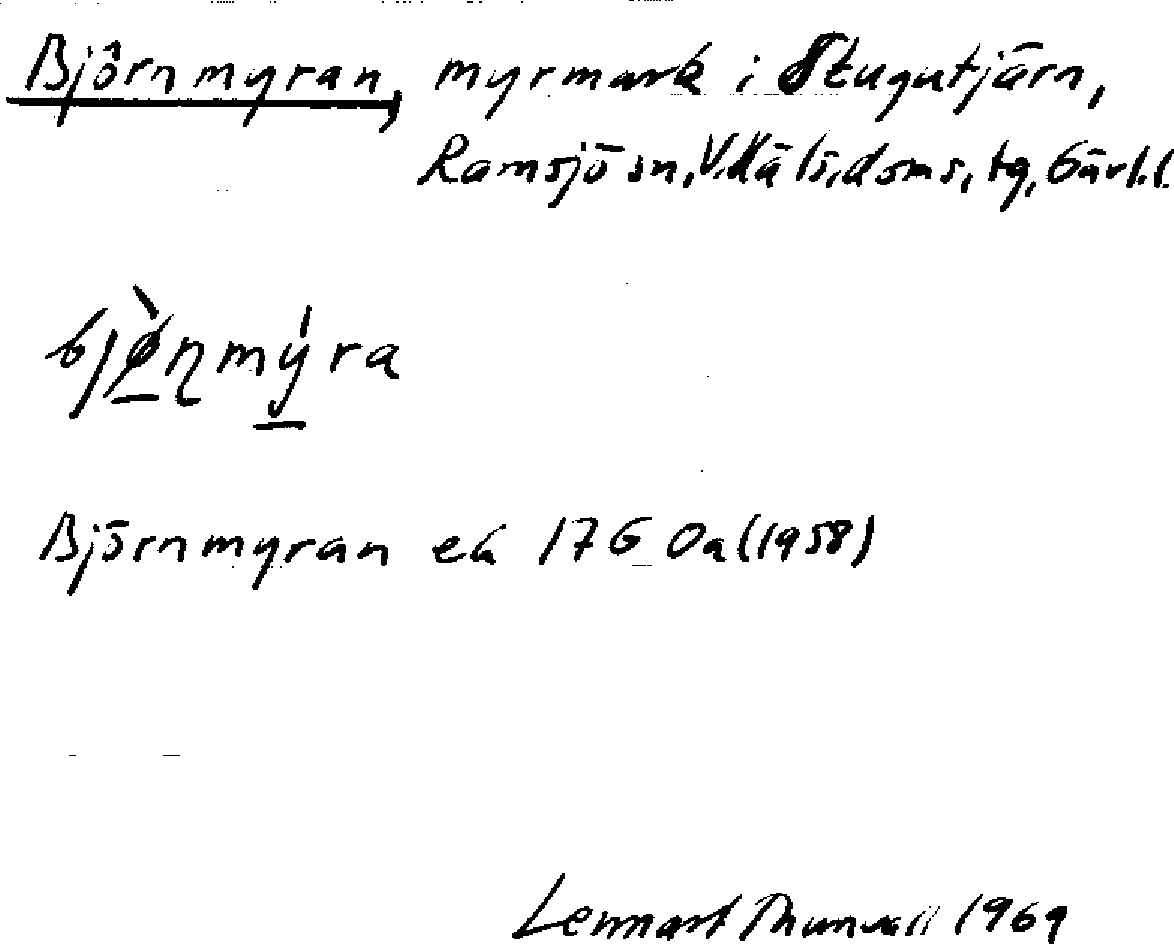 Björnmyran, myrmark i Stugutjärn,
Ramsjö sn, V. Häls. doms. tg, Gävl.l.
bjø̀ṇmýra
Björnmyran ek 17G 0a (1958)
Lennart Thunvall 1969